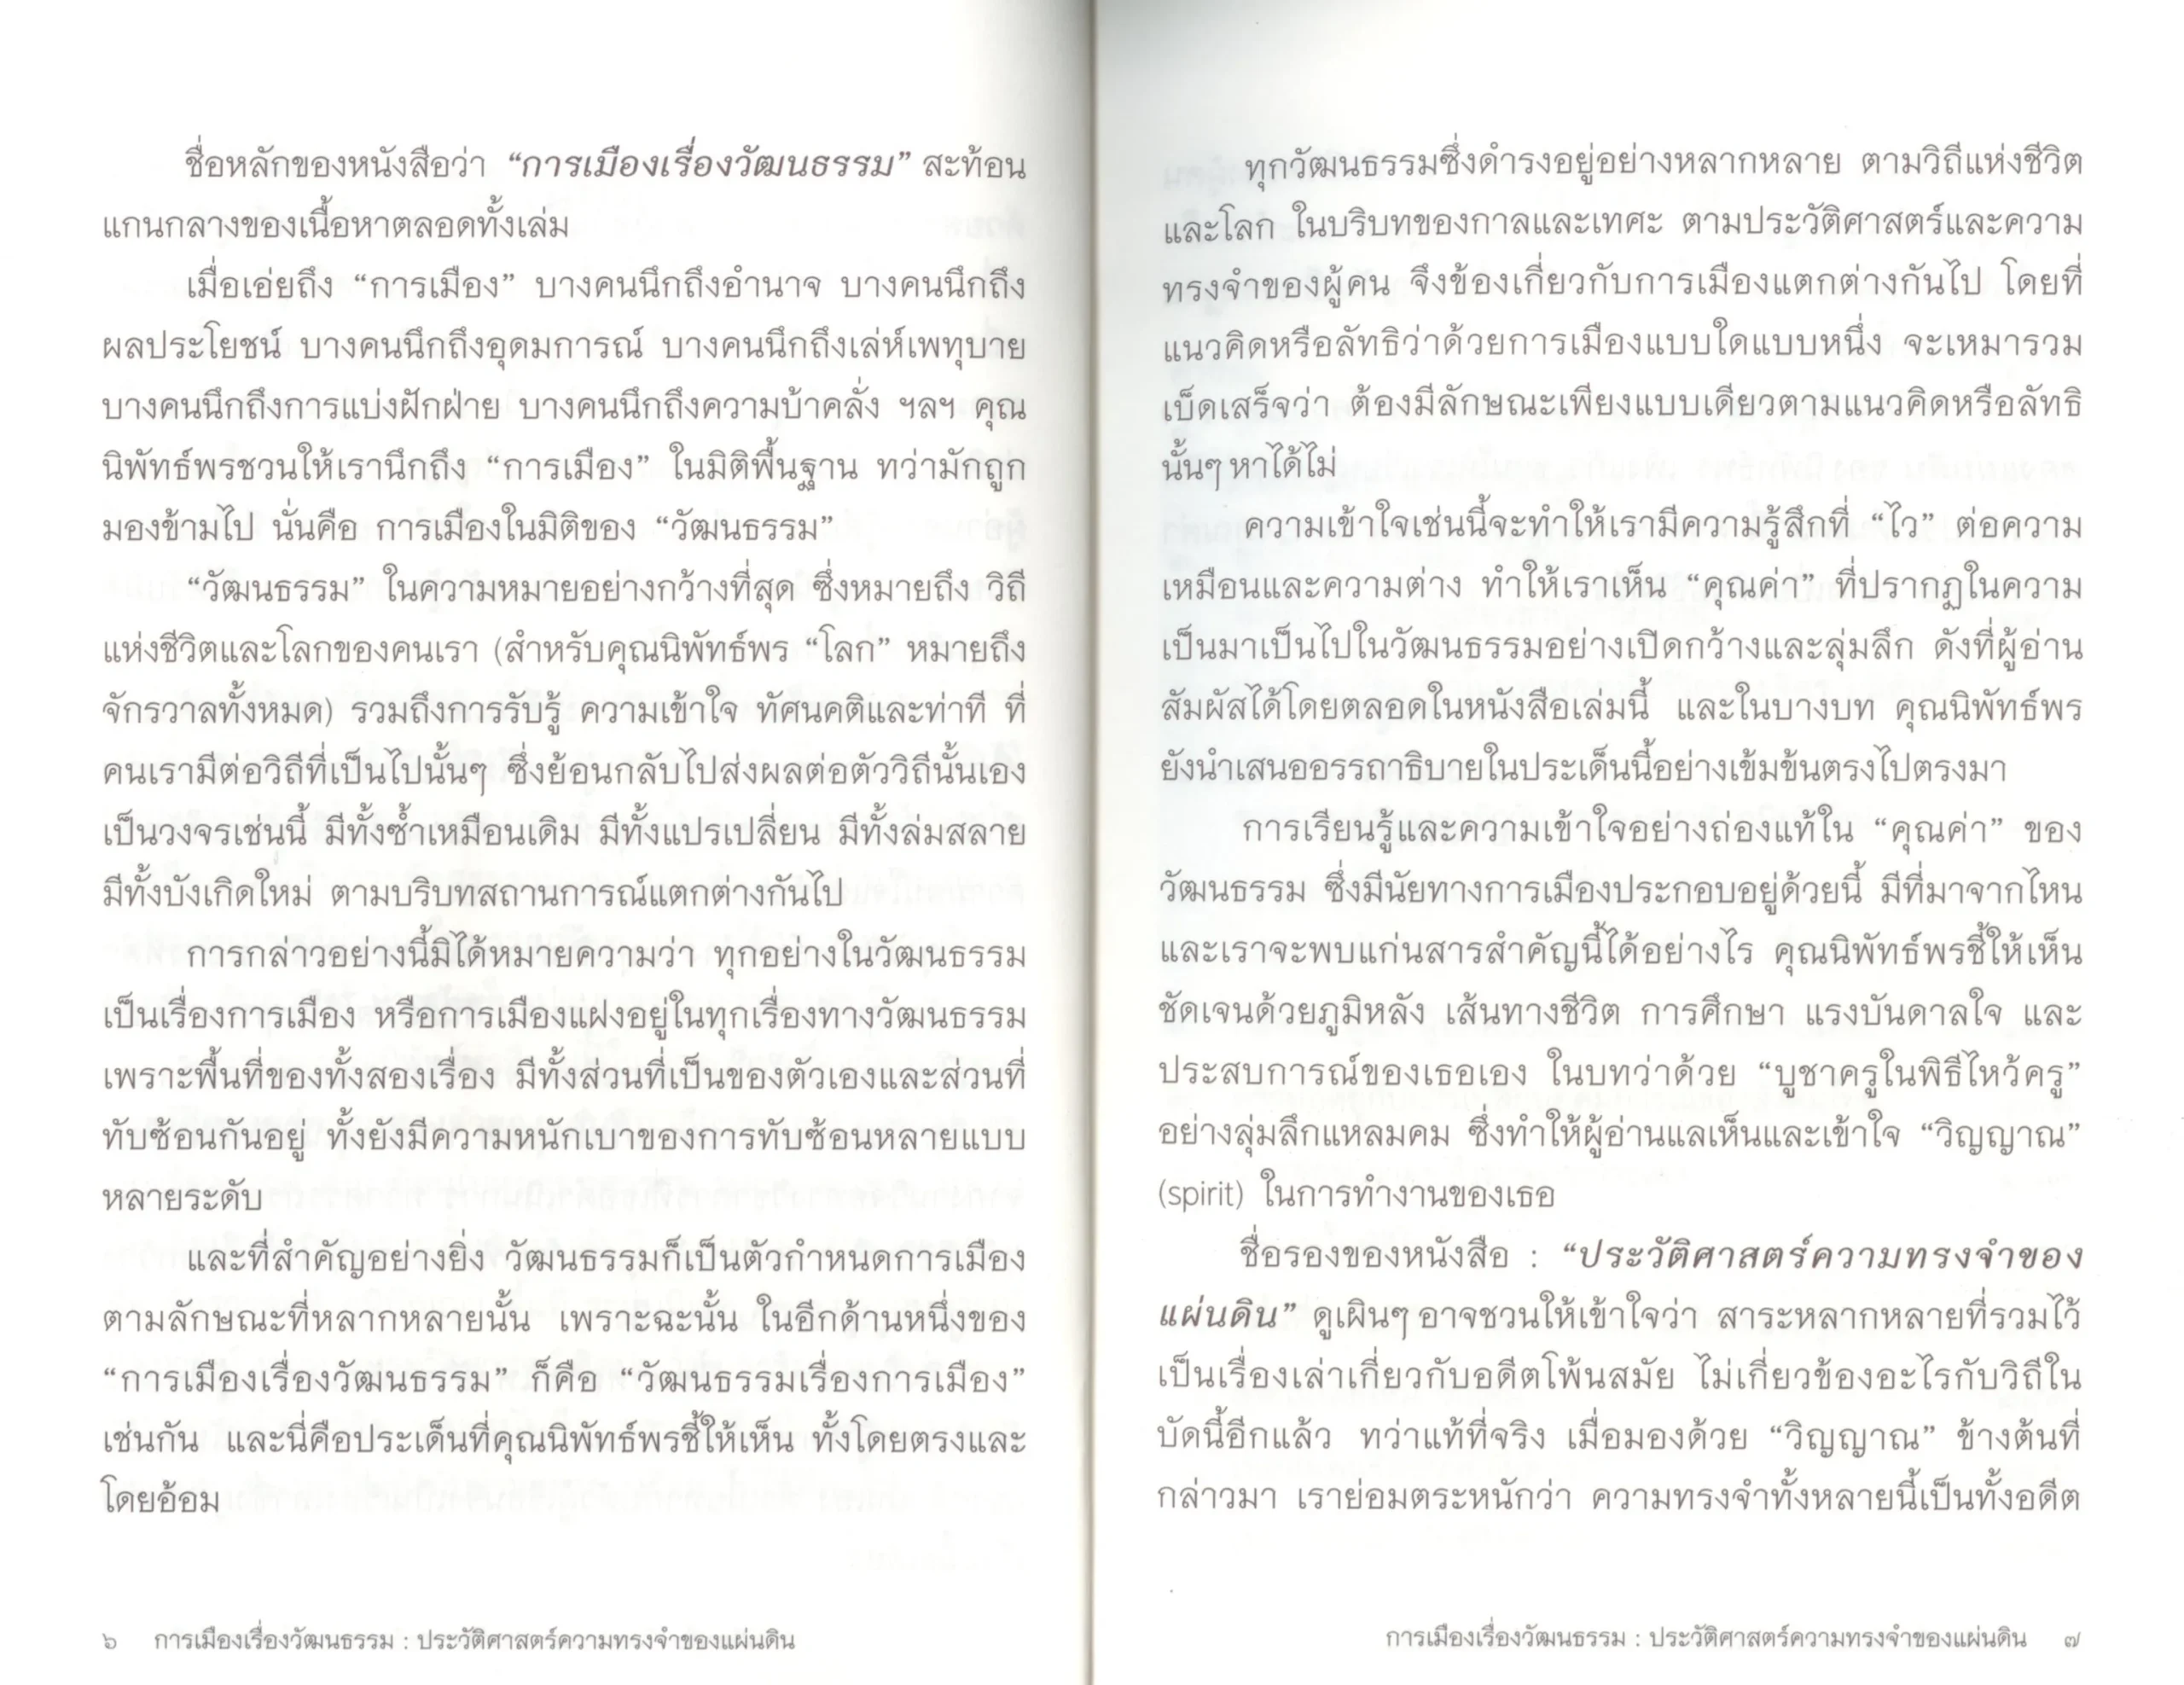 ชื่อหลักของหนังสือว่า “การเมืองเรื่องวัฒนธรรม” สะท้อน
แกนกลางของเนื้อหาตลอดทั้งเล่ม
เมื่อเอ่ยถึง “การเมือง” บางคนนึกถึงอำนาจ บางคนนึกถึง
ผลประโยชน์ บางคนนึกถึงอุดมการณ์ บางคนนึกถึงเล่ห์เพทุบาย
บางคนนึกถึงการแบ่งฝักฝ่าย บางคนนึกถึงความบ้าคลั่ง ฯลฯ คุณ
นิพัทธ์พรชวนให้เรานึกถึง “การเมือง” ในมิติพื้นฐาน ทว่ามักถูก
มองข้ามไป นั่นคือ การเมืองในมิติของ “วัฒนธรรม”
“วัฒนธรรม” ในความหมายอย่างกว้างที่สุด ซึ่งหมายถึง วิถี
แห่งชีวิตและโลกของคนเรา (สำหรับคุณนิพัทธ์พร “โลก” หมายถึง
จักรวาลทั้งหมด) รวมถึงการรับรู้ ความเข้าใจ ทัศนคติและท่าที ที่
คนเรามีต่อวิถีที่เป็นไปนั้นๆ ซึ่งย้อนกลับไปส่งผลต่อตัววิถีนั้นเอง
เป็นวงจรเช่นนี้ มีทั้งซ้ำเหมือนเดิม มีทั้งแปรเปลี่ยน มีทั้งล่มสลาย
มีทั้งบังเกิดใหม่ ตามบริบทสถานการณ์แตกต่างกันไป
การกล่าวอย่างนี้มิได้หมายความว่า ทุกอย่างในวัฒนธรรม
เป็นเรื่องการเมือง หรือการเมืองแฝงอยู่ในทุกเรื่องทางวัฒนธรรม
เพราะพื้นที่ของทั้งสองเรื่อง มีทั้งส่วนที่เป็นของตัวเองและส่วนที่
ทับซ้อนกันอยู่ ทั้งยังมีความหนักเบาของการทับซ้อนหลายแบบ
หลายระดับ
และที่สำคัญอย่างยิ่ง วัฒนธรรมก็เป็นตัวกำหนดการเมือง
ตามลักษณะที่หลากหลายนั้น เพราะฉะนั้น ในอีกด้านหนึ่งของ
“การเมืองเรื่องวัฒนธรรม” ก็คือ “วัฒนธรรมเรื่องการเมือง”
เช่นกัน และนี่คือประเด็นที่คุณนิพัทธ์พรชี้ให้เห็น ทั้งโดยตรงและ
โดยอ้อม
๖ การเมืองเรื่องวัฒนธรรม : ประวัติศาสตร์ความทรงจำของแผ่นดิน
ทุกวัฒนธรรมซึ่งดำรงอยู่อย่างหลากหลาย ตามวิถีแห่งชีวิต
และโลก ในบริบทของกาลและเทศะ ตามประวัติศาสตร์และความ
ทรงจำของผู้คน จึงข้องเกี่ยวกับการเมืองแตกต่างกันไป โดยที่
แนวคิดหรือลัทธิว่าด้วยการเมืองแบบใดแบบหนึ่ง จะเหมารวม
เบ็ดเสร็จว่า ต้องมีลักษณะเพียงแบบเดียวตามแนวคิดหรือลัทธิ
นั้นๆ หาได้ไม่
ความเข้าใจเช่นนี้จะทำให้เรามีความรู้สึกที่ “ไว” ต่อความ
เหมือนและความต่าง ทำให้เราเห็น “คุณค่า” ที่ปรากฏในความ
เป็นมาเป็นไปในวัฒนธรรมอย่างเปิดกว้างและลุ่มลึก ดังที่ผู้อ่าน
สัมผัสได้โดยตลอดในหนังสือเล่มนี้ และในบางบท คุณนิพัทธ์พร
ยังนำเสนออรรถาธิบายในประเด็นนี้อย่างเข้มข้นตรงไปตรงมา
การเรียนรู้และความเข้าใจอย่างถ่องแท้ใน “คุณค่า” ของ
วัฒนธรรม ซึ่งมีนัยทางการเมืองประกอบอยู่ด้วยนี้ มีที่มาจากไหน
และเราจะพบแก่นสารสำคัญนี้ได้อย่างไร คุณนิพัทธ์พรชี้ให้เห็น
ชัดเจนด้วยภูมิหลัง เส้นทางชีวิต การศึกษา แรงบันดาลใจ และ
ประสบการณ์ของเธอเอง ในบทว่าด้วย “บูชาครูในพิธีไหว้ครู”
อย่างลุ่มลึกแหลมคม ซึ่งทำให้ผู้อ่านแลเห็นและเข้าใจ “วิญญาณ”
(spirit) ในการทำงานของเธอ
ชื่อรองของหนังสือ : “ประวัติศาสตร์ความทรงจำของ
แผ่นดิน” ดูเผินๆ อาจชวนให้เข้าใจว่า สาระหลากหลายที่รวมไว้
เป็นเรื่องเล่าเกี่ยวกับอดีตโพ้นสมัย ไม่เกี่ยวข้องอะไรกับวิถีใน
บัดนี้อีกแล้ว ทว่าแท้ที่จริง เมื่อมองด้วย “วิญญาณ” ข้างต้นที่
กล่าวมา เราย่อมตระหนักว่า ความทรงจำทั้งหลายนี้เป็นทั้งอดีต
การเมืองเรื่องวัฒนธรรม : ประวัติศาสตร์ความทรงจำของแผ่นดิน ๗